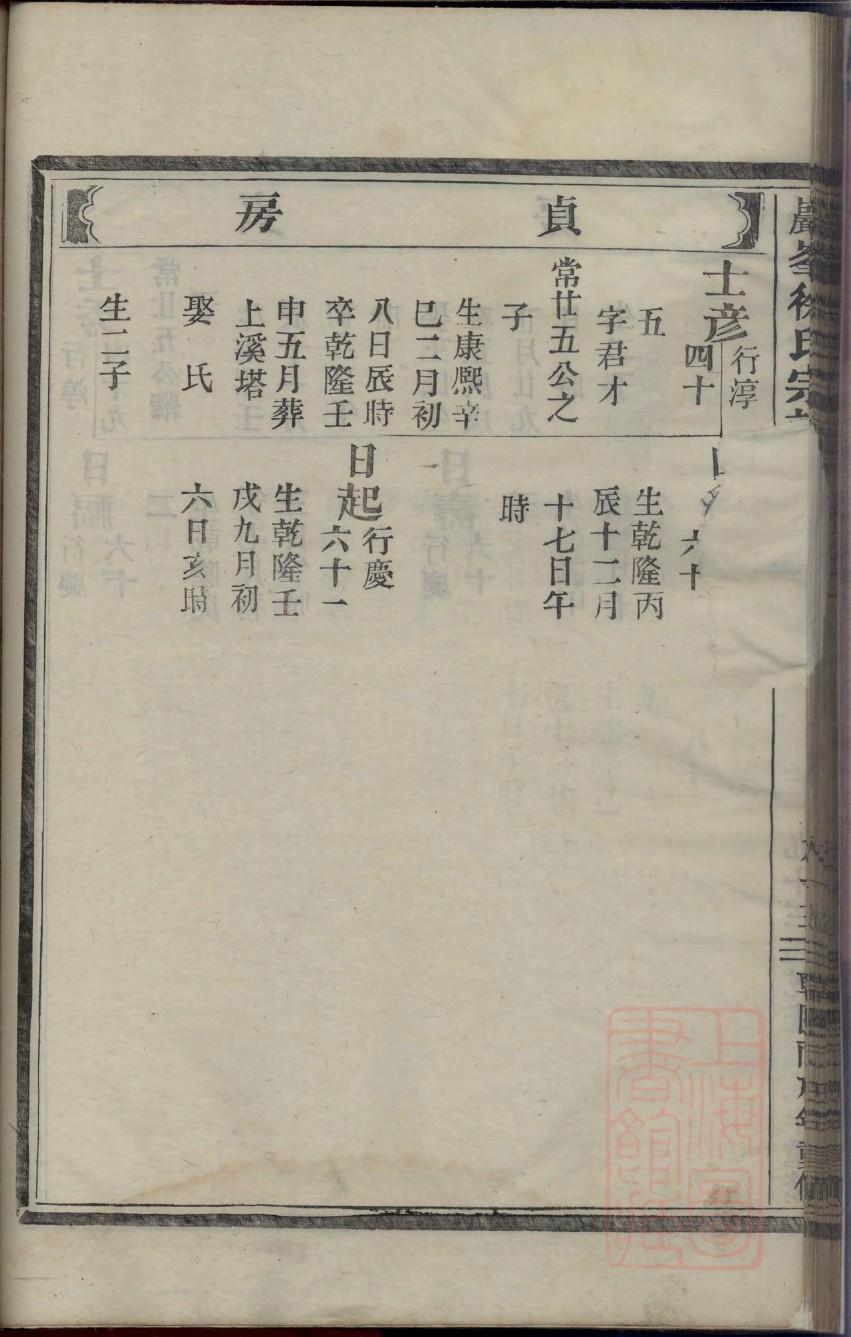 巖峯徐氏宗
貞房
士彦行淳四十
五
字君才
常廿五公之
子
生康熙辛
巳二月初
八日辰時
卒乾隆壬
申五月葬
上溪塔
娶氏
生二子
六十
生乾隆丙
辰十二月
十七日午
時
日起行慶六十一
生乾隆壬
戌九月初
六日亥時
上海圖書館藏